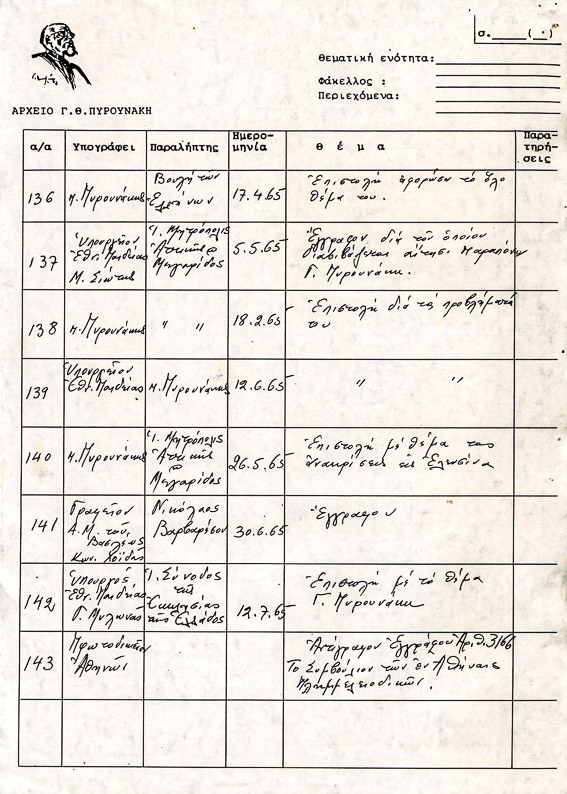 σ.____(·)
θεματική ενότητα:
Φάκελλος :
Περιεχόμενα:
ΑΡΧΕΙΟ Γ.Θ.ΠΥΡΟΥΝΑΚΗ
α/α Υπογράφει Παραλήπτης Ημερο-μηνία θ έ μ α Παρα-τηρή-σεις
136 π. Πυρουνάκης Βουλή των Ελλήνων 17.4.65 Ἐπιστολή το ὅλο
θέμα του.
137 Ὑπουργεῖον Ἐθν. Παιδείας Μ. Σιώτης Ἱ. Μητρόπολις Ἀττικῆς Μεγαρίδος 5.5.65 Ἔγγραφον διά τοῦ ὁποίου
διαβιβάζεται αἴτησι
Γ. Πυρουνάκη.
138 π. Πυρουνάκης " " 18.2.65 Ἐπιστολή διά τά προβλήματά
του
139 Ὑπουργεῖον Ἐθν. Παιδείας π. Πυρουνάκης 12.6.65 " "
140 π. Πυρουνάκης Ἱ. Μητρόπολις Ἀττικῆς Μεγαρίδος 26.5.65 Ἐπιστολή μέ θέμα τας
ἀνακρίσεις εἰς Ἐλευσίνα
141 Γραφεῖον Α.Μ. τοῦ Βασιλέως Κων. Χοϊδᾶς Νικόλαος Βαρβαρέσον 30.6.65 Ἔγγραφον
142 Ὑπουργός Ἐθν. Παιδείας Γ. Μυλωνάς Ἱ. Σύνοδος τῆς Ἐκκλησίας τῆς Ἑλλάδος 12.7.65 Ἐπιστολή μέ τό θέμα
Γ. Πυρουνάκη
143 Πρωτοδικεῖον Ἀθηνῶν Ἀντίγραφον Ἐγγράφου Ἀριθ. 3/66
Το Συμβούλιον τῶν ἐν Ἀθήναις
Πλημμελειοδικῶν.